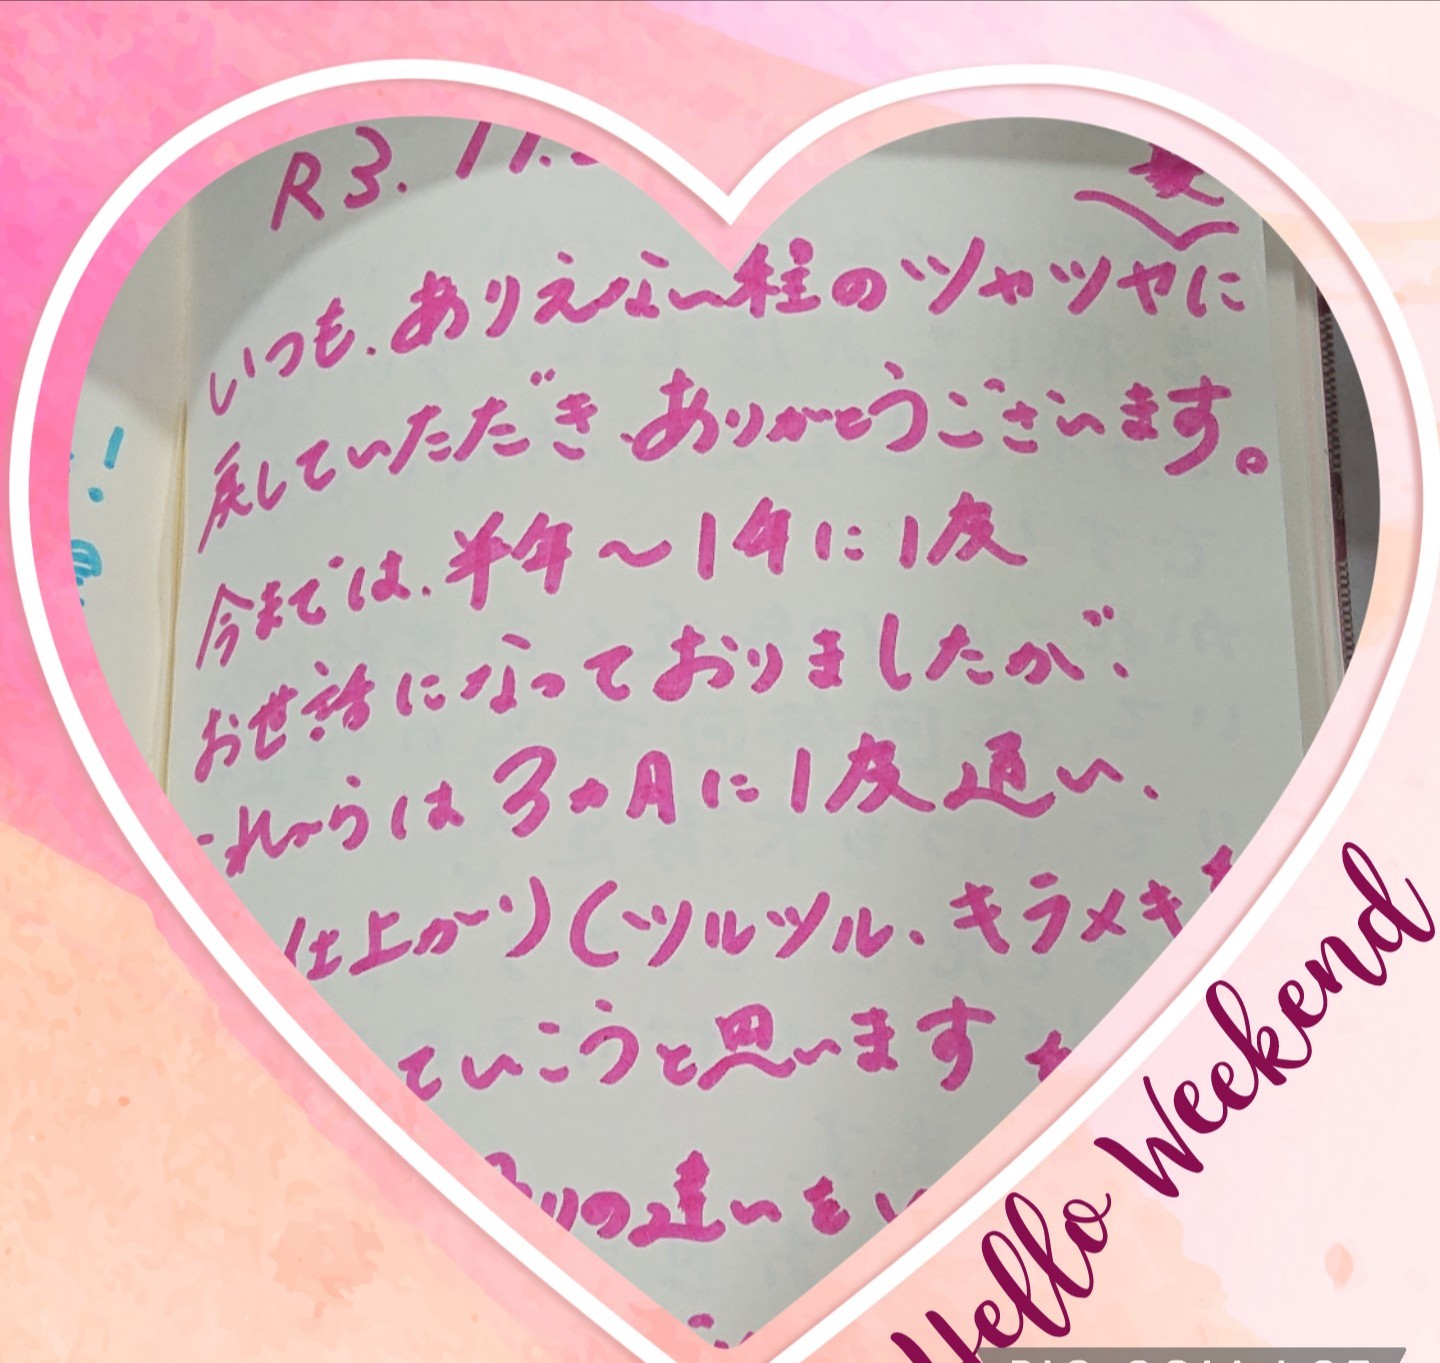 R3. 11.
いつも、ありえない程のツヤツヤに
戻していただき、ありがとうございます。
今までは、半年〜1年に1度
お世話になっておりましたが、
これからは3ヵ月に1度通い、
仕上がり(ツルツル、キラメキ
ていこうと思います
の違いを
Hello Weekend
PIC COLLAGE